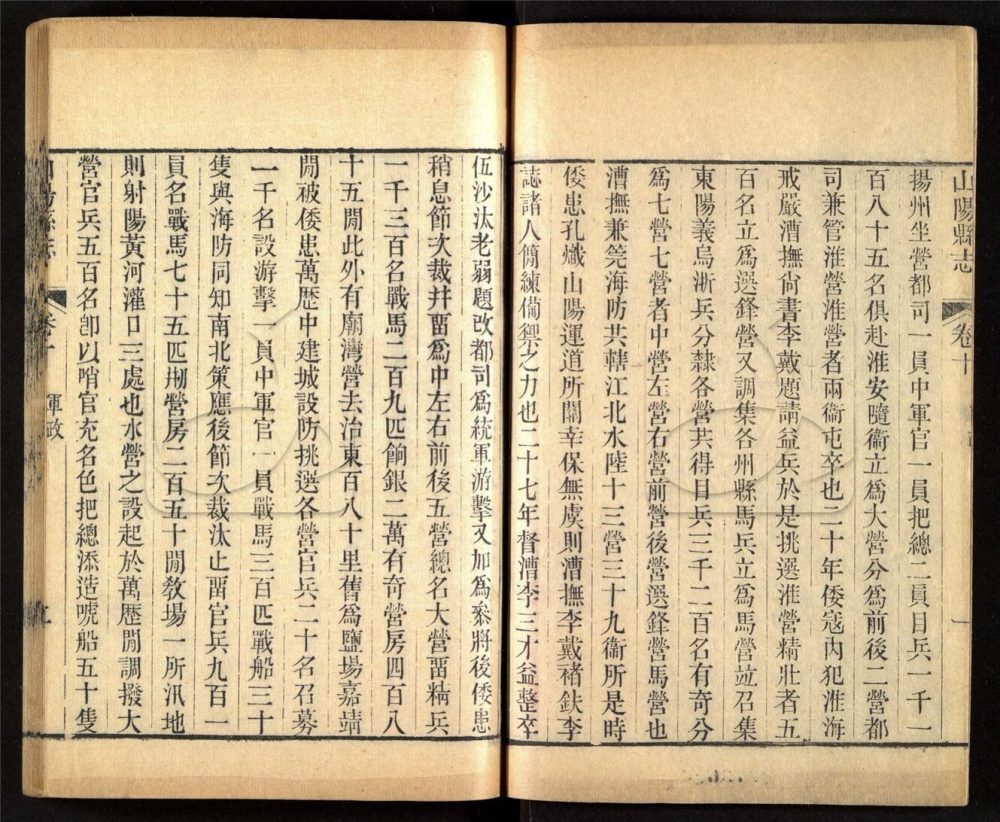 山陽縣志
卷十
一
揚州坐營都司一員中軍官一員把總二員目兵一千一
百八十五名俱赴淮安隨衞立爲大營分爲前後二營都
司兼管淮營淮營者兩衞屯卒也二十年倭寇內犯淮海
戒嚴漕撫尙書李戴題請益兵於是挑選淮營精壯者五
百名立爲選鋒營又調集各州縣馬兵立爲馬營竝召集
東陽義烏浙兵分隸各營共得目兵三千二百名有奇分
爲七營七營者中營左營右營前營後營選鋒營馬營也
漕撫兼筦海防共轄江北水陸十三營三十九衞所是時
倭患孔熾山陽運道所關幸保無虞則漕撫李戴褚鈇李
誌諸人簡練備禦之力也二十七年督漕李三才益整卒
伍沙汰老弱題改都司爲統軍游擊又加爲叅將後倭患
稍息節次裁幷畱爲中左右前後五營總名大營畱精兵
一千三百名戰馬二百九匹餉銀二萬有奇營房四百八
十五閒此外有廟灣營去治東百八十里舊爲鹽場嘉靖
閒被倭患萬歷中建城設防挑選各營官兵二十名召募
一千名設游擊一員中軍官一員戰馬三百匹戰船三十
隻與海防同知南北策應後節次裁汰止畱官兵九百一
員名戰馬七十五匹剏營房二百五十閒敎場一所汛地
則射陽黃河灌口三處也水營之設起於萬歷閒調撥大
營官兵五百名卽以哨官充名色把總添造唬船五十隻
山陽縣志
卷十
軍政